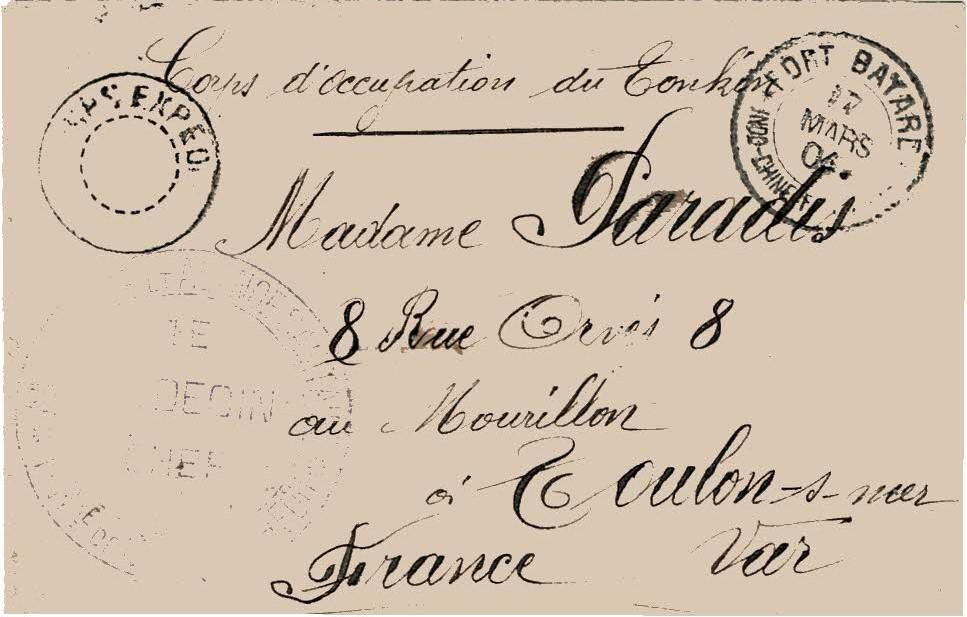 Corps d'occupation du Tonkin
CPS EXPED
FORT BAYARD
17
MARS
04
CHINE
Madame Paradis
8 Rue Orvès 8
au Mourillon
à Toulon-s-mer
France Var
LE
DECIN
CHEF